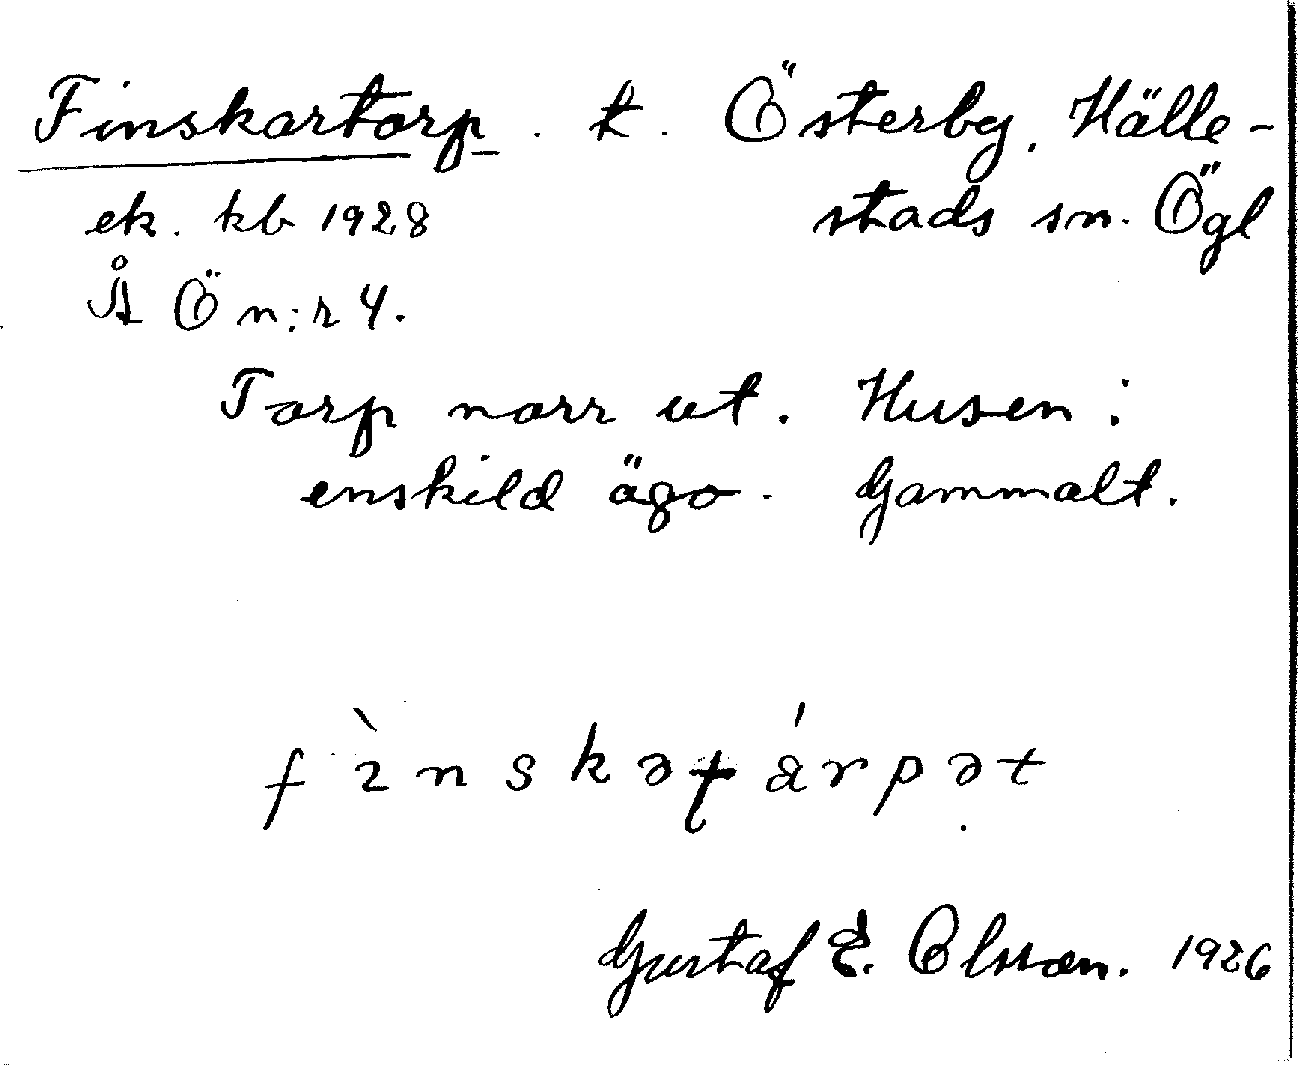 Finskartorp. t. Österby, Hälle-
ek. kb 1928 stads sn. Ögl
Å Ö n:r 4.
Torp norr ut. Husen i
enskild ägo. Gammalt.
fìnskəʈárpət
Gustaf E. Olsson. 1926